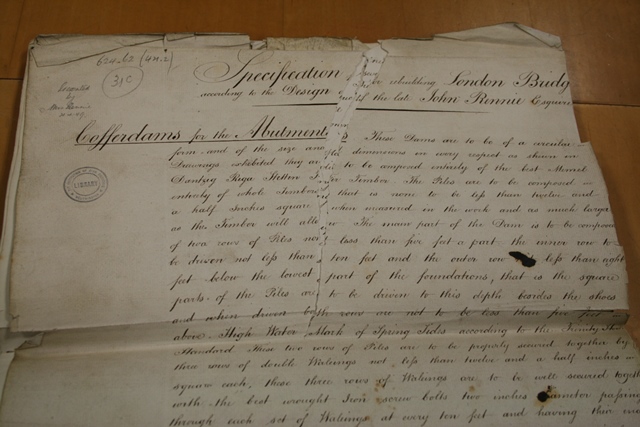 624.62 (42.1.2)
31C
Presented
by
Specification for rebuilding London Bridg
according to the Design of the late John Rennie Esquire
Cofferdams for the Abutments. These Dams are to be of a circular
form and of the size and dimensions in every respect as shewn in
Drawings exhibited they are to be composed entirely of the best Memel
Dantzig Riga Stettin Timber. The Piles are to be composed
entirely of whole Timbers that is none to be less than twelve and
a half Inches square when measured in the work and as much larger
as the Timber will allow The main part of the Dam is to be composed
of two rows of Piles not less than five feet a part the inner row to
be driven not less than ten feet and the outer row less than eight
feet below the lowest part of the foundations, that is the square
parts of the Piles are to be driven to this depth besides the shoes
and when driven both rows are not to be less than five feet
above High Water Mark of Spring Tides according to the Trinity
Standard These two rows of Piles are to be properly secured together by
three rows of double Waleings not less than twelve and a half inches
square each, these three rows of Waleings are to be well secured togeth
with the best wrought Iron screw bolts two inches diameter passing
through each set of Waleings at every ten feet and having
LIBRARY